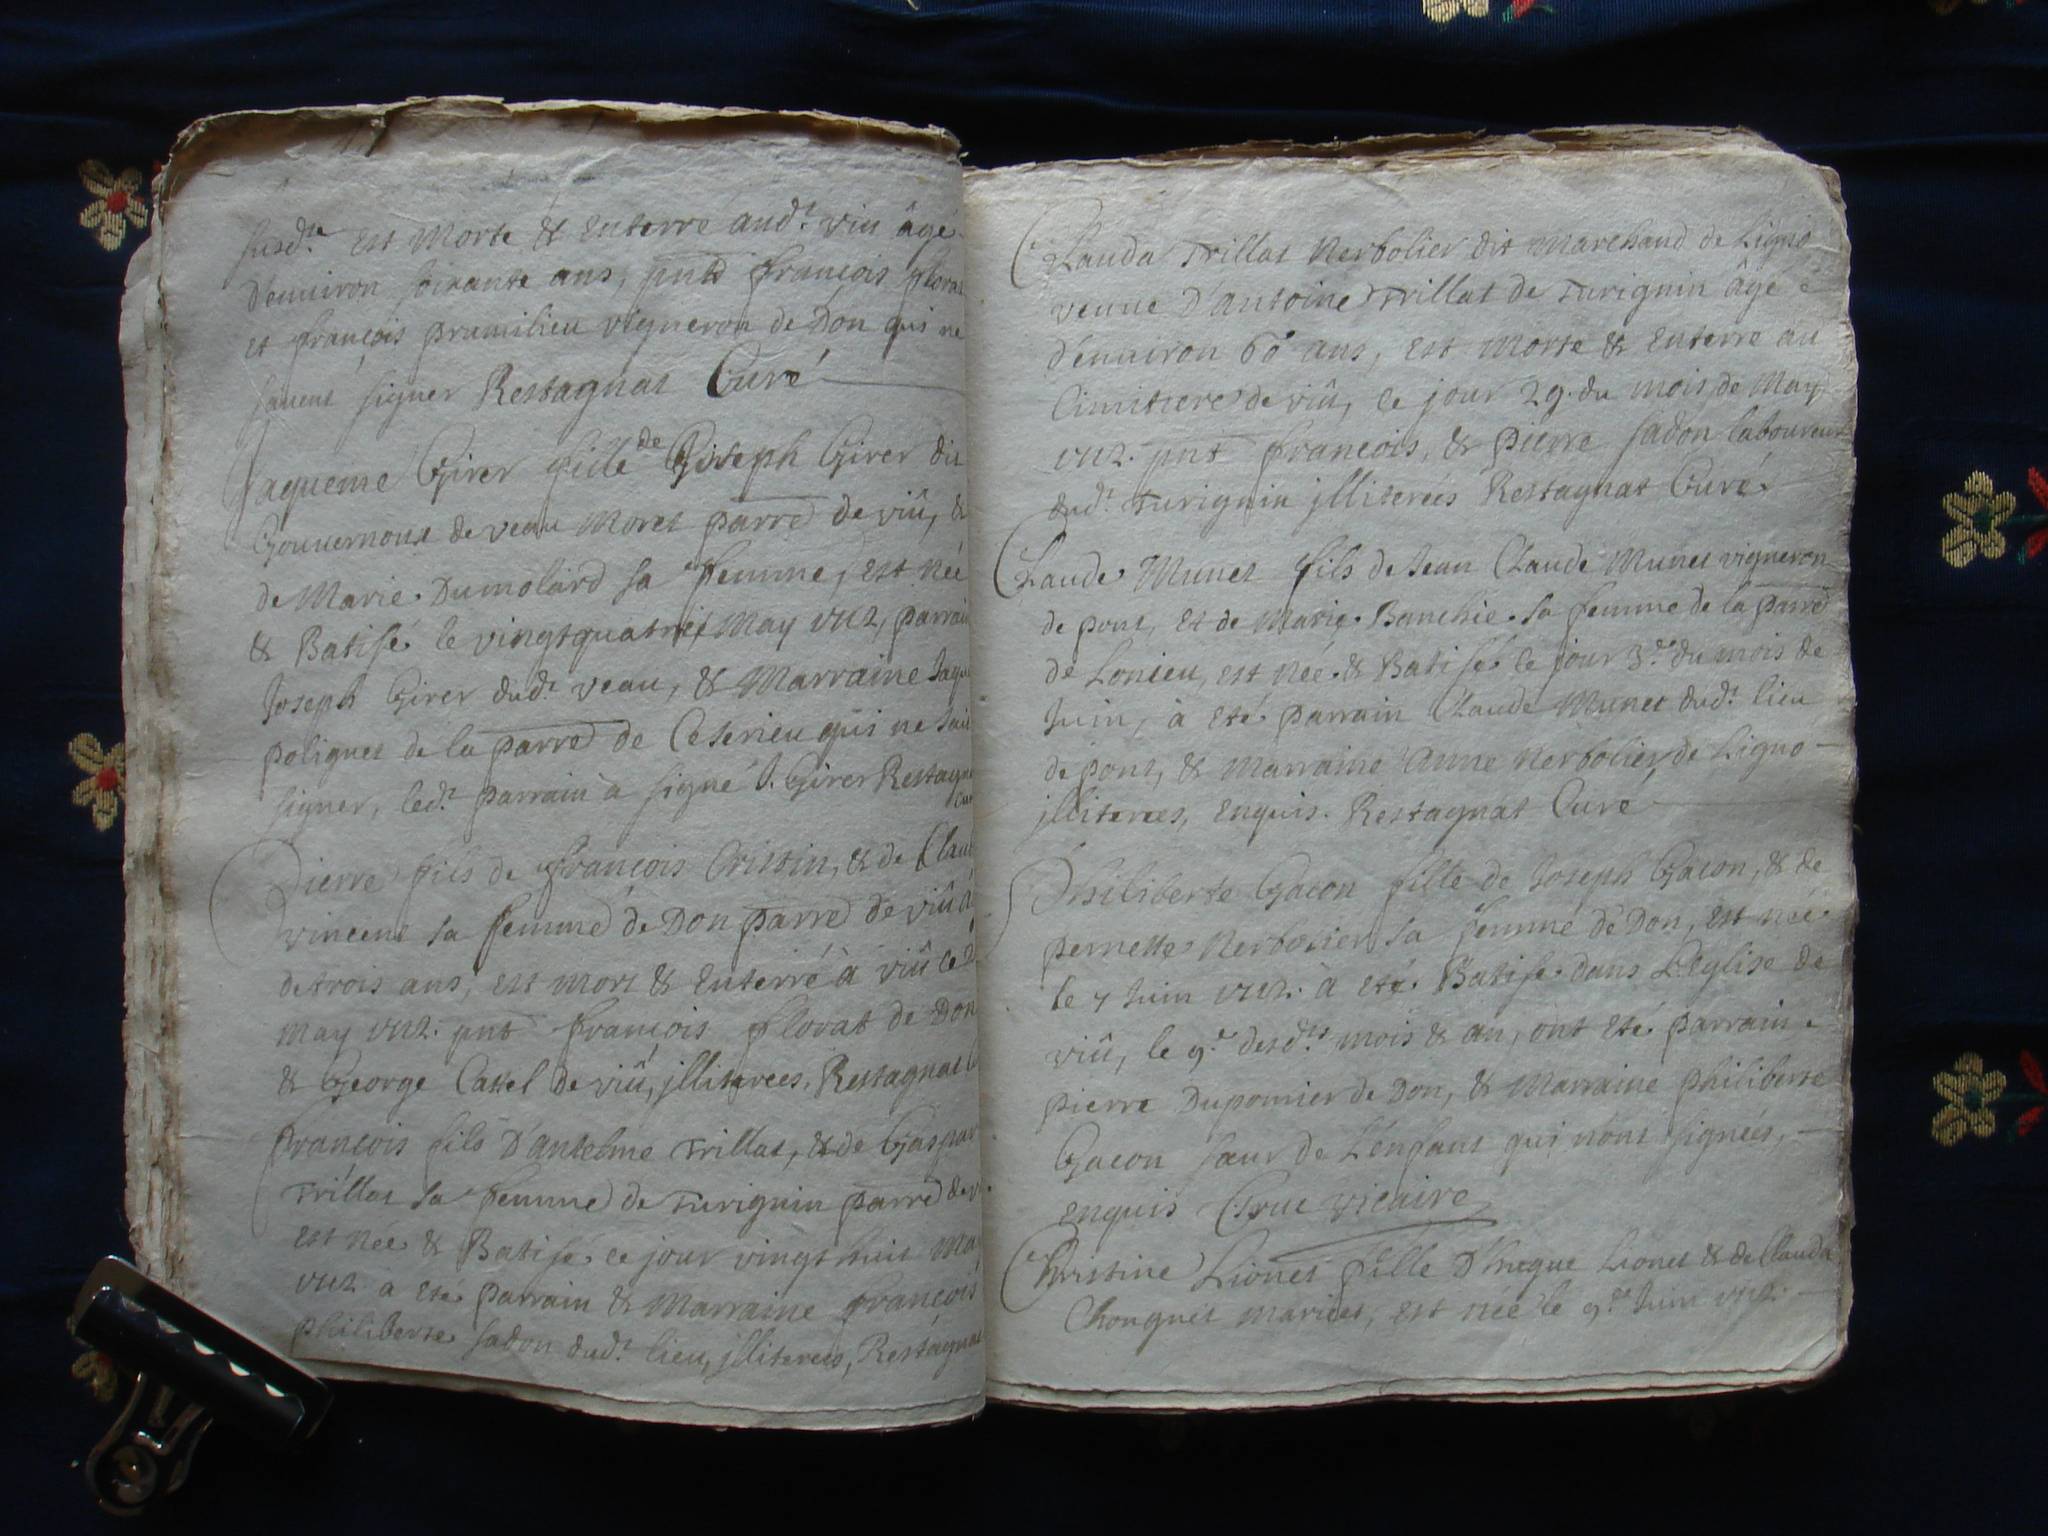 susd.te est Morte & Enterré aud.t viu âgé
d'enuiron soixante ans, pnts françois florat
et françois pramilieu vigneron de Don qui ne
sauent signer Restagnat Curé
Jaqueme Girer fille de Joseph Girer dit
Gouuernoux de veau Moret parre de viû, &
de Marie Dumolard sa femme, est née
& Batisé le vingtquatre May 1712, parrain
Joseph Girer dud.t veau, & Marraine Jaqu
polignet de la parre de Ceserieu qui ne sait
signer, led.t parrain à signé J. Girer Restagn
Cur
Pierre fils de françois Cristin, & de Clau
vincent sa femme de Don parre de viû â
de trois ans, est mort & Enterré à viû ce 2
may 1712. pnt françois florat de Don
& George Cattel de viû, jlliterees, Restagnat
françois fils D'antelme Trillat, & de Gaspar
Trillat sa femme de Turignin parre de v
est née & Batisé ce jour vingt huit Ma
1712 a eté parrain & Marraine françois
philiberte sadon dud.t lieu, jlliterees, Restagnat
Clauda Trillat Nerbolier dit Marchand de Ligno
veuue D'antoine Trillat de Turignin âgé
d'enuiron 60 ans, est Morte & Enterré au
Cimitiere de viû, ce jour 29. du mois de May
1712. pnt françois, & pierre sadon laboureur
dud.t Turignin jlliterées Restagnat Curé.
Claude Munet fils de Jean Claude Munet vigneron
de pont, et de Marie Banchie sa femme de la parre
de Lonieu, est née & Batisé ce jour 3.e du mois de
Juin, à eté parrain Claude Munet dud.t lieu
de pont, & Marraine Anne Nerbolier de Ligno
jlliterees, Enquis. Restagnat Curé
Philiberte Gacon fille de Joseph Gacon, & de
pernette Nerbolier sa femme de Don, est née
le 7 Juin 1712. à eté Batisé dans L'Eglise de
viû, le 9.e desd.ts mois & an, ont eté parrain
pierre Dupomier de Don, & Marraine philiberte
Gacon sœur de L'enfant qui n'ont signées,
enquis Crue vicaire
Christine Lionet fille D'hugue Lionet & de Clauda
Chouguet mariées, est née le 9.e Juin 1712.